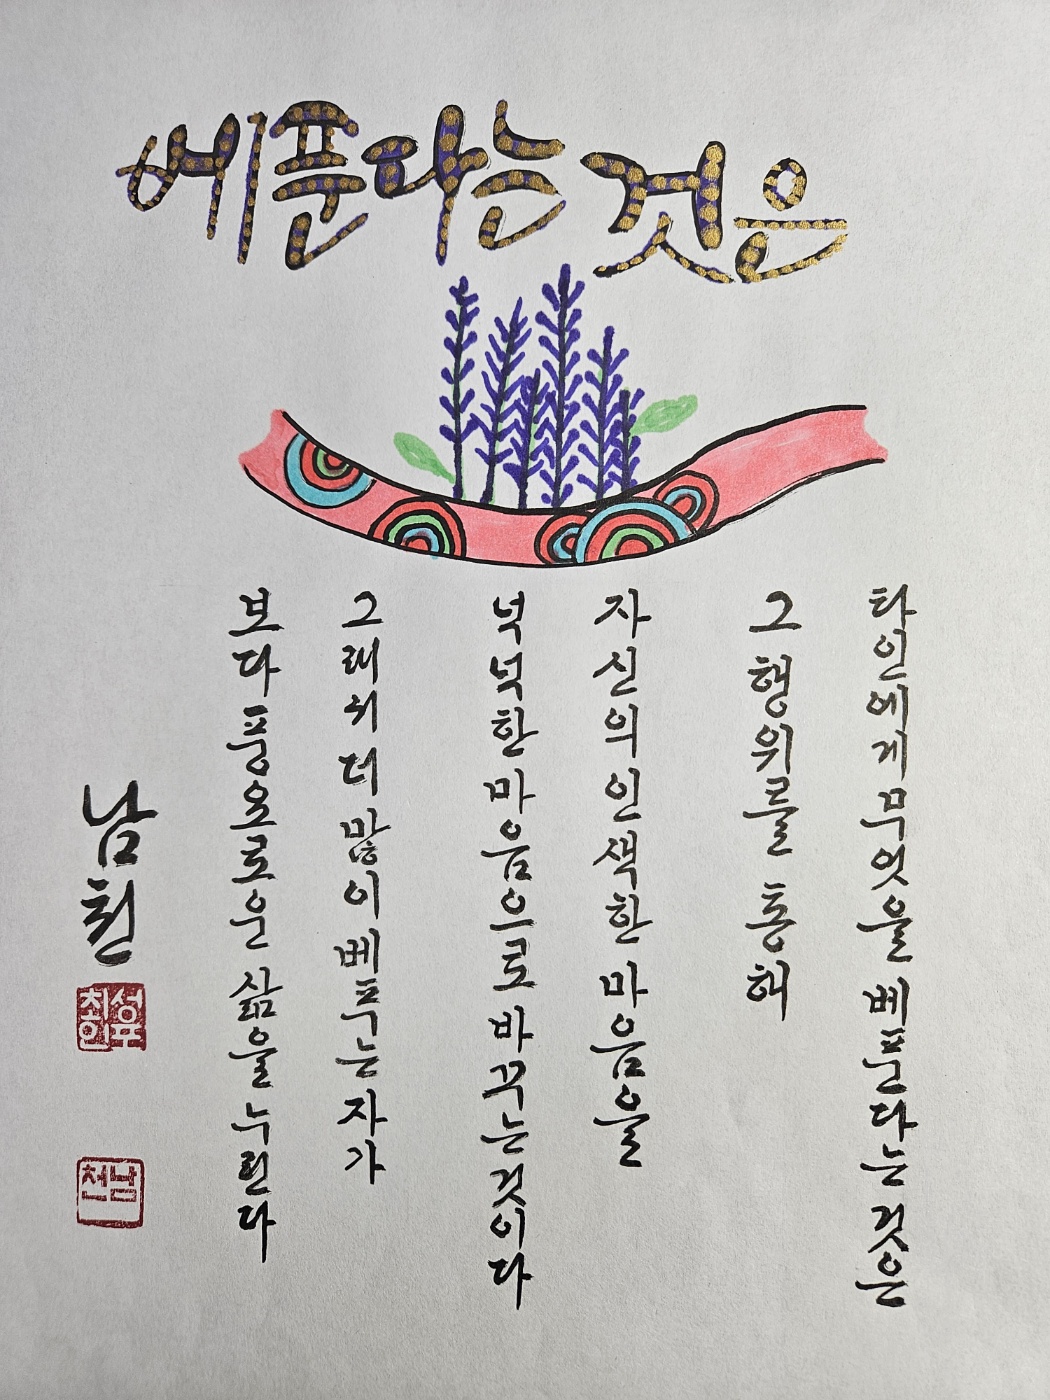 베푼다는 것은
타인에게 무엇을 베푼다는 것은
그 행위를 통해
자신의 인색한 마음을
넉넉한 마음으로 바꾸는 것이다
그래서 더 많이 베푸는 자가
보다 풍요로운 삶을 누린다
남천
남천